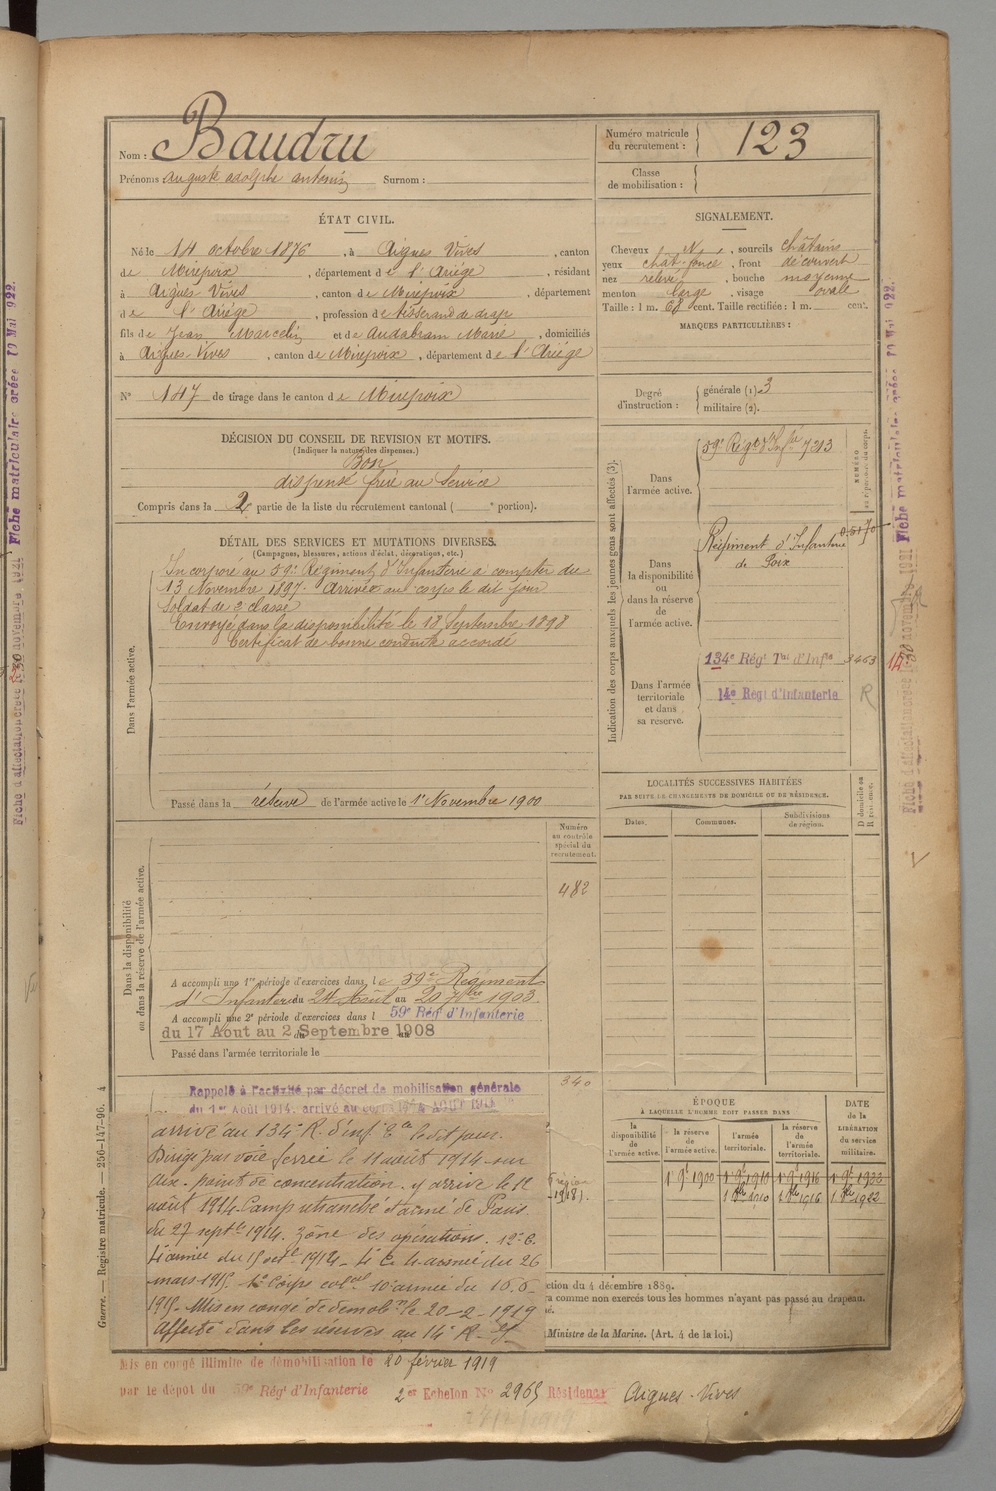 Nom : Baudru
Prénoms auguste adolphe antonin Surnom :
Numéro matricule du recrutement : 123
Classe de mobilisation :
ÉTAT CIVIL.
Né le 14 octobre 1876, à Aigues Vives, canton
de Mirepoix, département de l'Ariége, résidant
à Aigues Vives, canton de Mirepoix, département
de l'Ariége, profession de tisserand de drap
fils de Jean Marcelin et de Audabram Marie, domiciliés
à Aigues-Vives, canton de Mirepoix, département de l'Ariége
N° 147 de tirage dans le canton de Mirepoix
SIGNALEMENT.
Cheveux N, sourcils châtains
yeux chât. foncé, front découvert
nez relevé, bouche moyenne
menton large, visage ovale
Taille : 1 m. 68 cent. Taille rectifiée : 1 m. cent.
MARQUES PARTICULIÈRES :
Degré d'instruction : générale (1). 3
militaire (2).
DÉCISION DU CONSEIL DE REVISION ET MOTIFS.
(Indiquer la nature des dispenses.)
Bon
dispensé frère au Service
Compris dans la 2 partie de la liste du recrutement cantonal ( e portion).
DÉTAIL DES SERVICES ET MUTATIONS DIVERSES.
(Campagnes, blessures, actions d'éclat, décorations, etc.)
Dans l'armée active.
Incorporé au 59e Régiment d'Infanterie à compter du
13 Novembre 1897. Arrivée au corps le dit jour
Soldat de 2 classe
Envoyé dans la disponibilité le 18 Septembre 1898
Certificat de bonne conduite accordé
Passé dans la réserve de l'armée active le 1er Novembre 1900
Indication des corps auxquels les jeunes gens sont affectés (3).
NUMÉRO au répertoire du corps.
Dans l'armée active.
59e Régt d'Infie 7213
Dans la disponibilité ou dans la réserve de l'armée active.
Régiment d'Infanterie
de Foix
Dans l'armée territoriale et dans sa reserve.
134e Régt Tal d'Infie 3463
14e Régt d'Infanterie R
LOCALITÉS SUCCESSIVES HABITÉES
PAR SUITE DE CHANGEMENTS DE DOMICILE OU DE RÉSIDENCE.
Dates. Communes. Subdivisions de région. D domicile ou R résidence.
Dans la disponibilité ou dans la réserve de l'armée active.
Numéro au contrôle spécial du recrutement.
482
A accompli une 1re période d'exercices dans le 59e Régiment
d'Infanterie du 24 Août au 20 7bre 1903
A accompli une 2e période d'exercices dans l 59e Rég' d'Infanterie
du 17 Aout au 2 Septembre 1908
Passé dans l'armée territoriale le
340
Rappelé à l'activité par décret de mobilisation générale
du 1er Août 1914, arrivé au corps le 4 AOUT 1914
arrivé au 134e R. d'inf. Tle le dit jour.
Dirigé par voie ferrée le 11 août 1914 sur
Aix. point de concentration. y arrive le 12
août 1914. Camp retranché d'armé de Paris.
du 27 septbre 1914. Zône des opérations. 12e C.
4e armée du 15 octbre 1914
mars 1915. 10e armée du 16.6.
1915. Mis en congé de démobon le 20-2-1919
Affecté dans les réserves au 14e R.
région
1918).
ÉPOQUE
À LAQUELLE L'HOMME DOIT PASSER DANS
la disponibilité de l'armée active. la réserve de l'armée active. l'armée territoriale. la réserve de l'armée territoriale. DATE de la LIBÉRATION du service militaire.
1er 9bre 1900 1er 9bre 1910 1er 9bre 1916 1er 9bre 1922
1 8bre 1910 1 8bre 1916 1 8bre 1922
ction du 4 décembre 1889.
a comme non exercés tous les hommes n'ayant pas passé au drapeau.
Ministre de la Marine. (Art. 4 de la loi.)
Mis en congé illimité de démobilisation le 20 février 1919
par le dépôt du 59e Rég' d'Infanterie 2e Echelon No 2965 Résidence Aigues-Vives
Guerre. — Registre matricule. — 256-147-96. 4
Fiche matriculaire créée 19 Mai 1922.
Fiche d'affectation créée le 30 novembre 1921